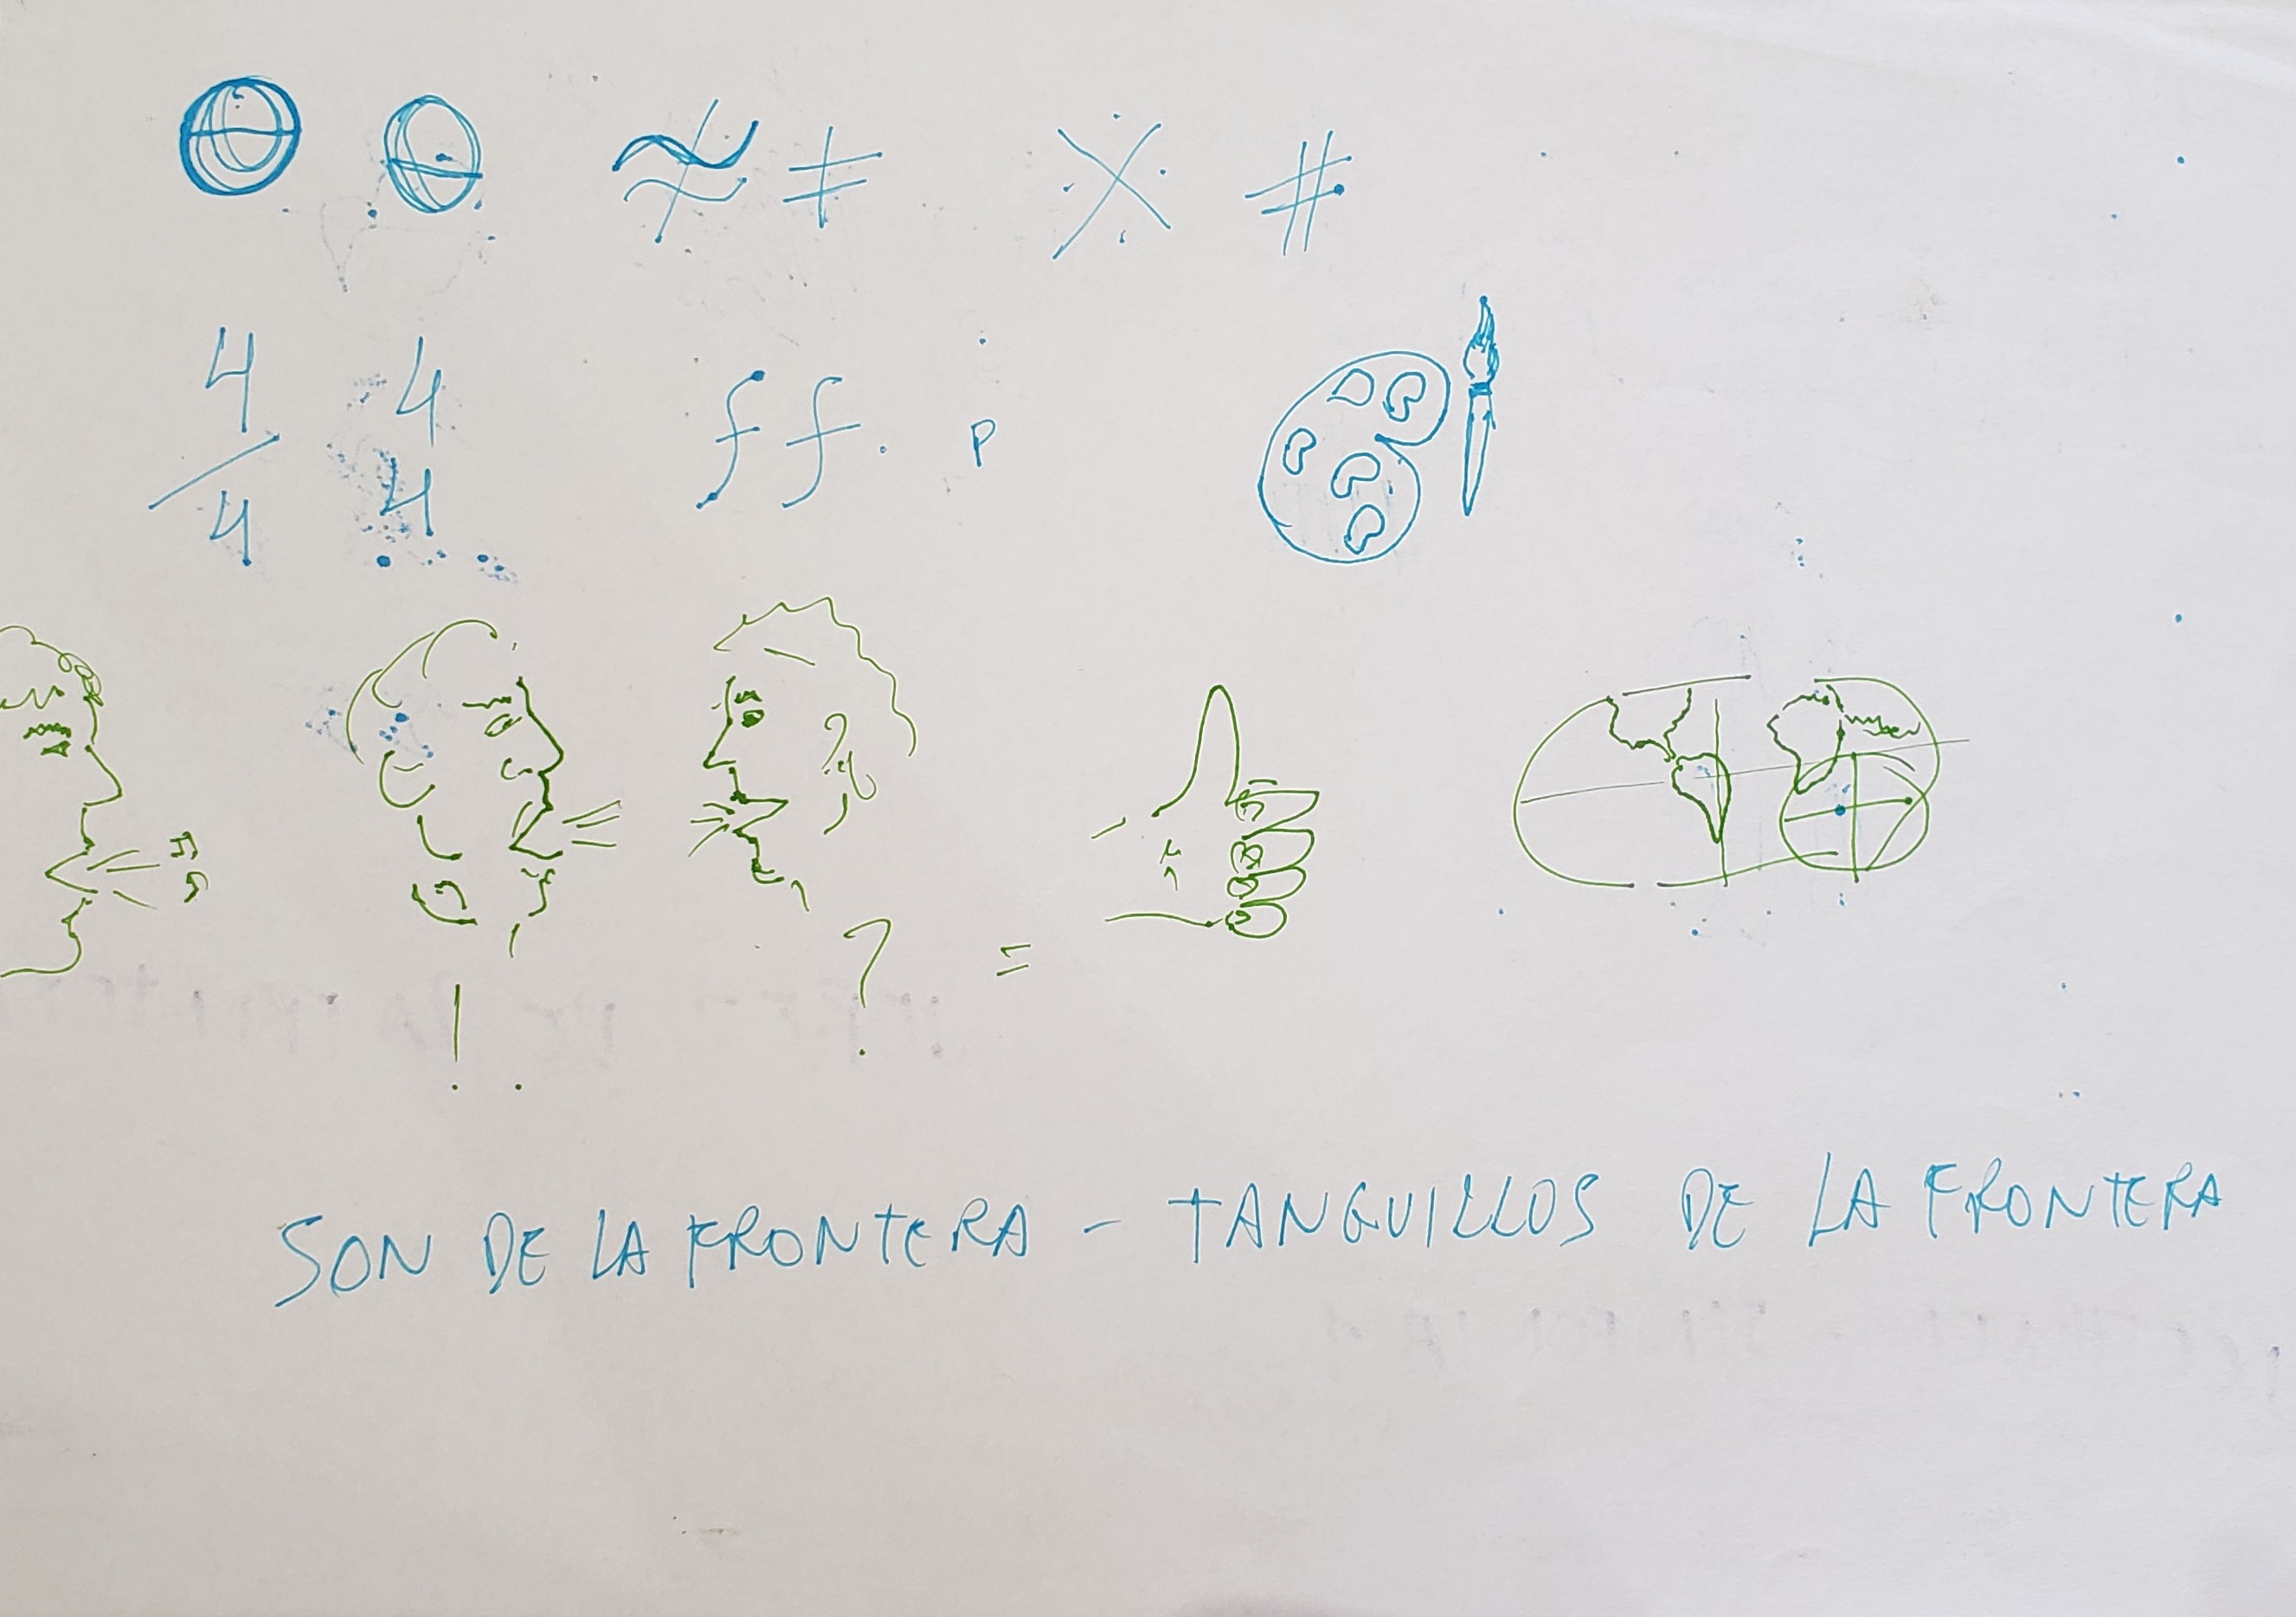 ≉ ≠ ※ #
4/4 4 4 ff. p
! . ? =
SON DE LA FRONTERA - TANGUILLOS DE LA FRONTERA